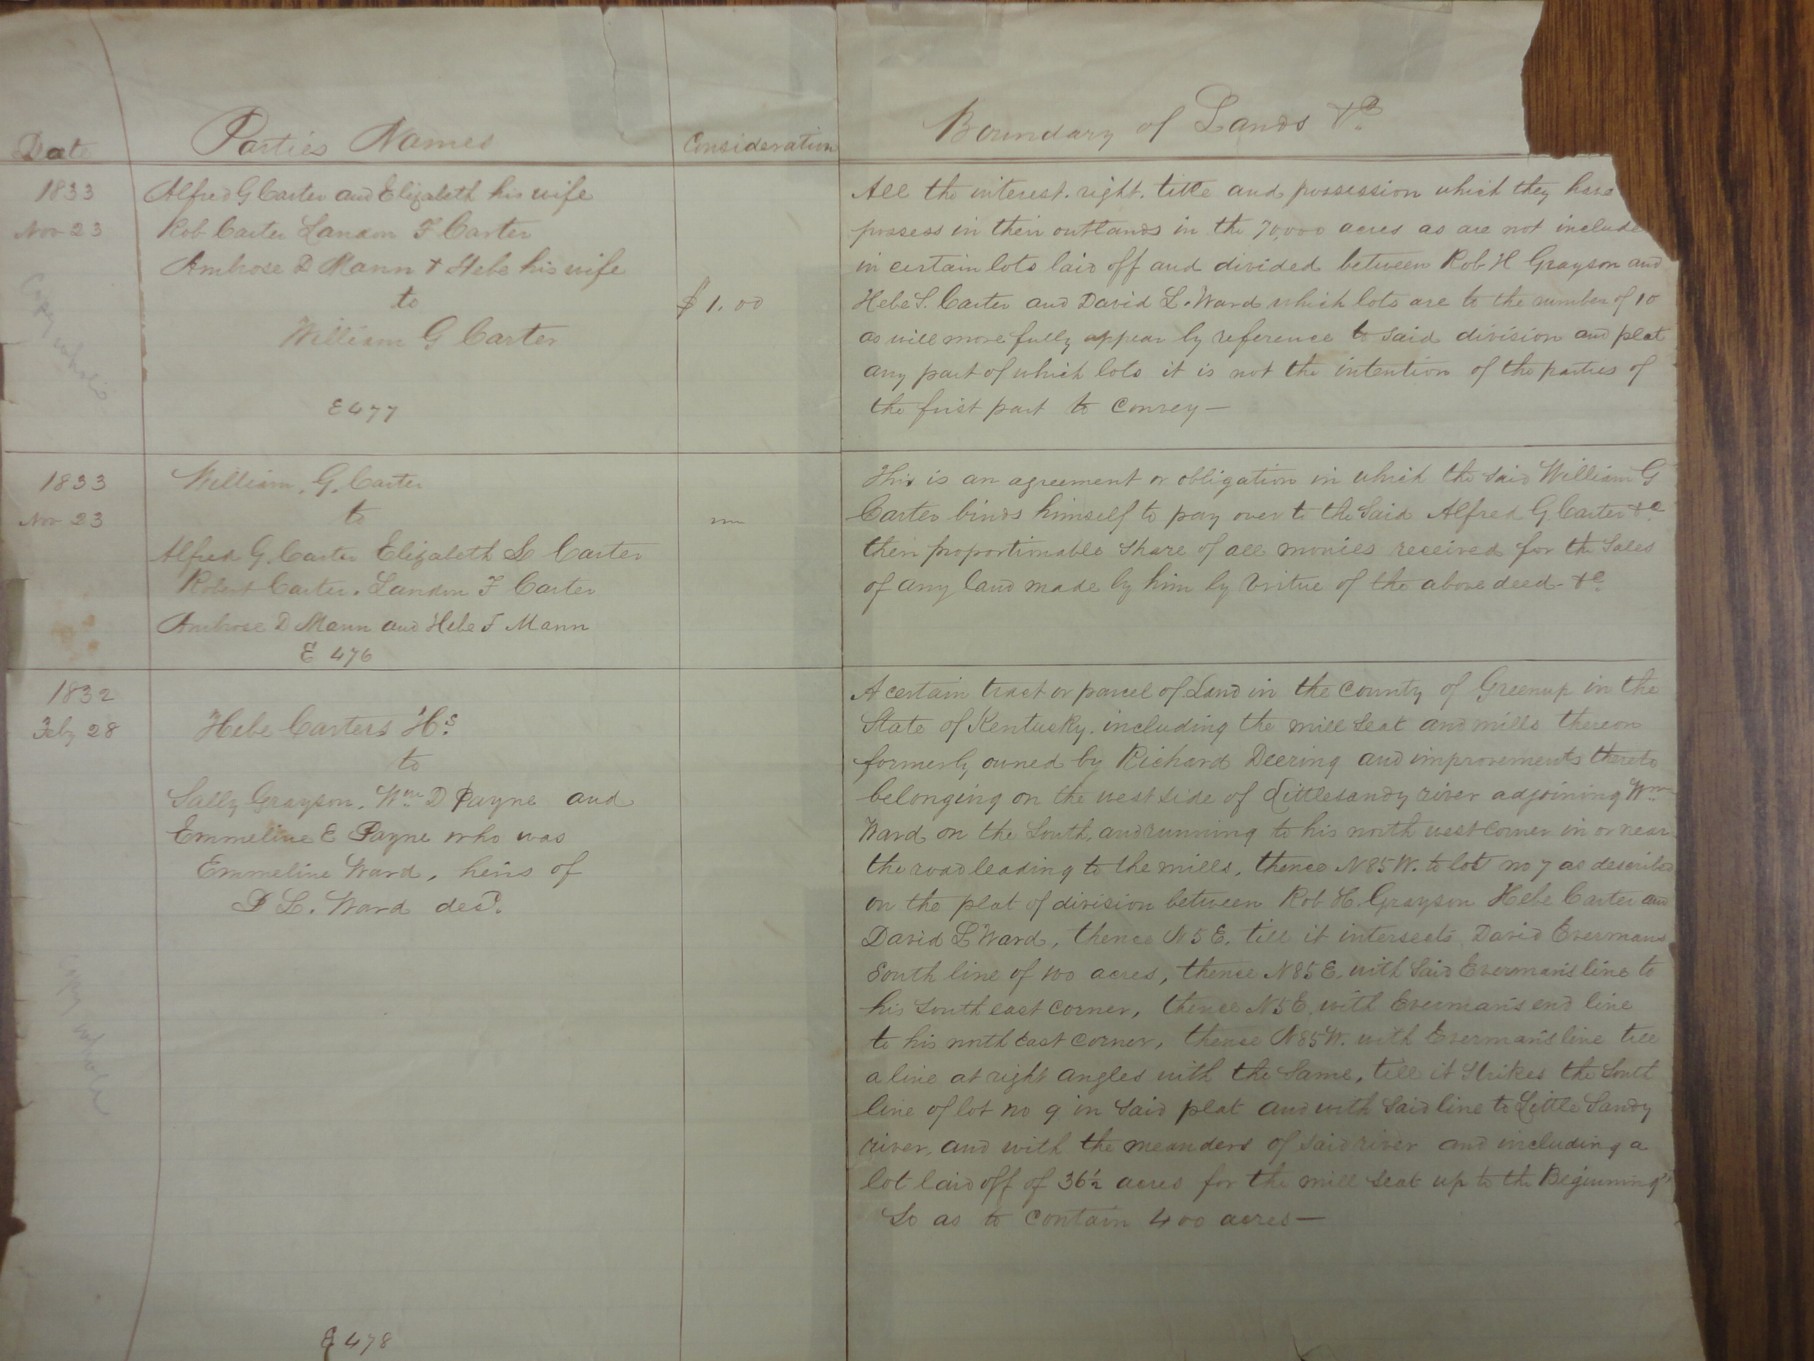 Date
Parties Names
Consideration
Boundary of Lands &c
1833
Nov 23
Alfred G Carter and Elizabeth his wife
Rob Carter Landon F Carter
Ambrose D Mann & Hebe his wife
to
William G Carter
E 477
$1.00
All the interest. right. title and possession which they have
possess in their outlands in the 70,000 acres as are not include
in certain lots laid off and divided between Rob H Grayson and
Hebe S. Carter and David L. Ward which lots are to the number of 10
as will more fully appear by reference to said division and plat
any part of which lots it is not the intention of the parties of
the first part to convey—
Copy whole
1833
Nov 23
William. G. Carter
to
Alfred G. Carter Elizabeth L Carter
Robert Carter. Landon F Carter
Ambrose D Mann and Hebe F Mann
E 476
This is an agreement or obligation in which the said William G
Carter binds himself to pay over to the said Alfred G Carter &c
their proportionable share of all monies received for the sales
of any land made by him by virtue of the above deed &c
1832
Feby 28
Hebe Carters Hs
to
Sally Grayson. Wm D Payne and
Emmeline E Payne who was
Emmeline Ward, heirs of
D L. Ward decd.
E 478
A certain tract or parcel of Land in the county of Greenup in the
State of Kentusky. including the mill seat and mills thereon
formerly owned by Richard Deering and improvements thereto
belonging on the west side of Littlesandy river adjoining Wm
Ward on the South, and running to his north west corner in or near
the road leading to the mills, thence N85W. to lot no 7 as described
on the plat of division between Rob H. Grayson Hebe Carter and
David L Ward, thence N5E. till it intersects David Evermans
South line of 100 acres, thence N85E with said Everman's line to
his South east corner, thence N5E with Everman's end line
to his north East corner, thence N85W. with Everman's line till
a line at right angles with the same, till it strikes the South
line of lot no 9 in said plat and with said line to Little Sandy
river, and with the meanders of said river and including a
lot laid off of 36½ acres for the mill seat up to the Beginning
So as to contain 400 acres—